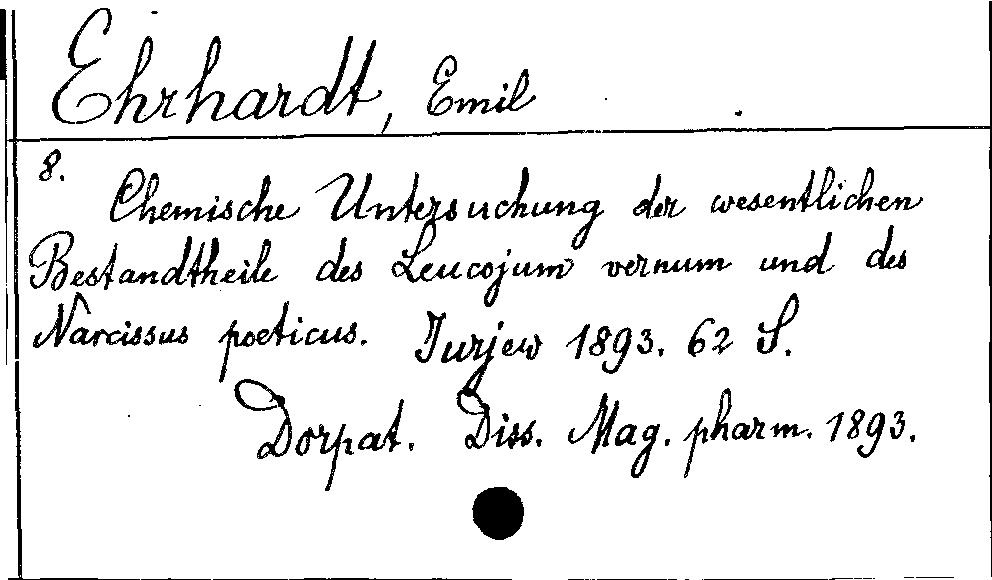 Ehrhardt, Emil
8.
Chemische Untersuchung der wesentlichen
Bestandtheile des Leucojum vernum und des
Narcissus poeticus. Jurjew 1893. 62 S.
Dorpat. Diss. Mag. pharm. 1893.